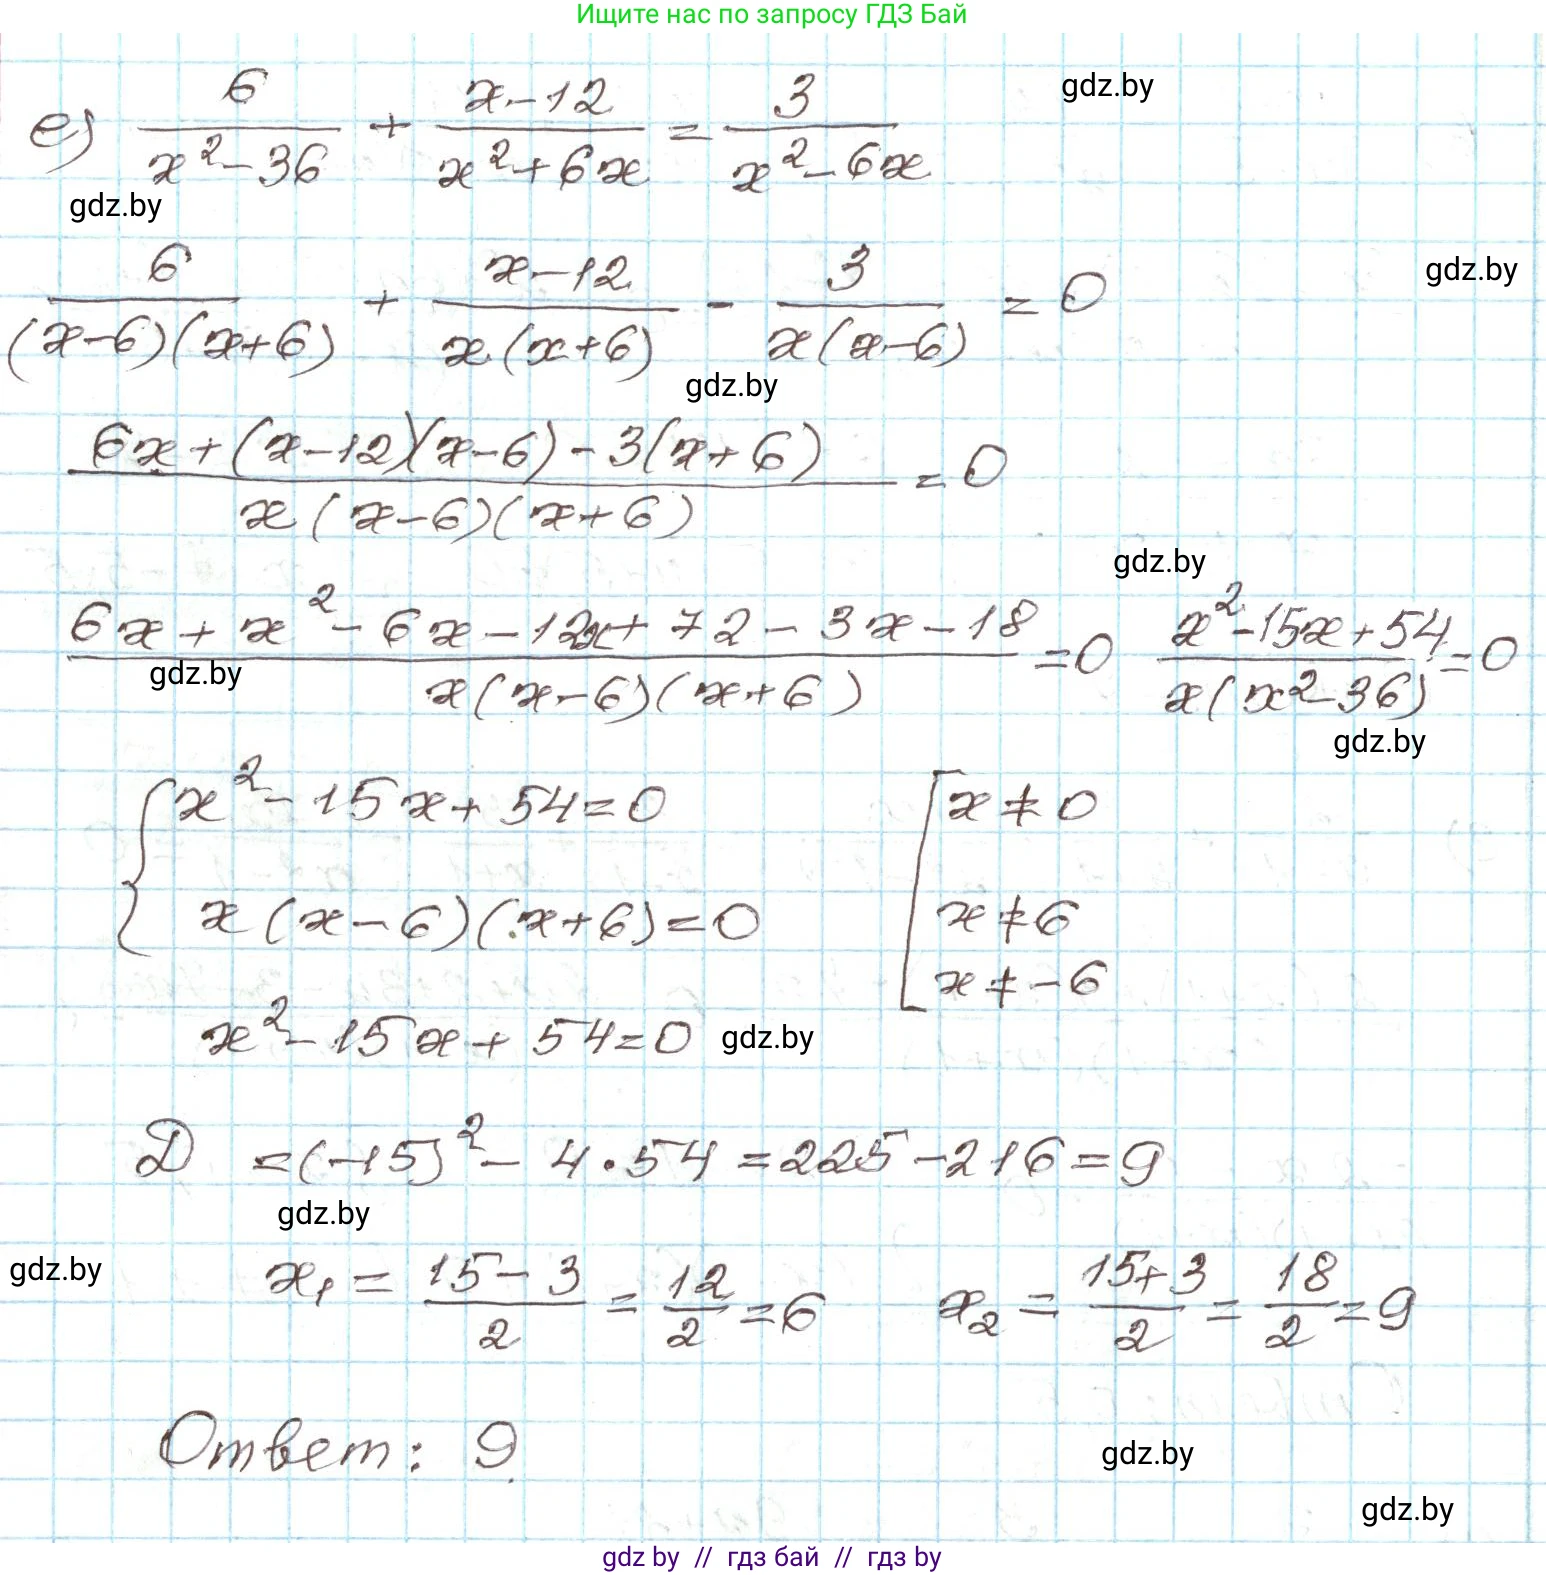 Ищите нас по запросу ГДЗ Бай
е) 6/(x² - 36) + (x - 12)/(x² + 6x) = 3/(x² - 6x)
gdz.by
gdz.by
6/((x - 6)(x + 6)) + (x - 12)/(x(x + 6)) - 3/(x(x - 6)) = 0
gdz.by
gdz.by
(6x + (x - 12)(x - 6) - 3(x + 6))/(x(x - 6)(x + 6)) = 0
gdz.by
(6x + x² - 6x - 12x + 72 - 3x - 18)/(x(x - 6)(x + 6)) = 0 (x² - 15x + 54)/(x(x² - 36)) = 0
gdz.by
gdz.by
{ x² - 15x + 54 = 0 [ x ≠ 0
x(x - 6)(x + 6) = 0 x ≠ 6
x ≠ -6
x² - 15x + 54 = 0
gdz.by
Д = (-15)² - 4 · 54 = 225 - 216 = 9
gdz.by
gdz.by
x₁ = (15 - 3)/2 = 12/2 = 6 x₂ = (15 + 3)/2 = 18/2 = 9
Ответ: 9
gdz.by
gdz.by
gdz by // гдз бай // гдз by